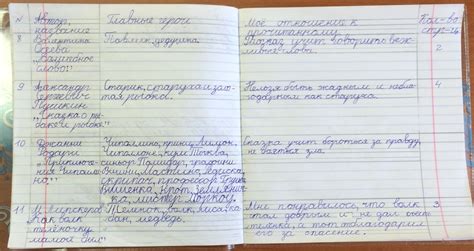 N Автор, название Главные герои Моё отношение к прочитанному. Кол-во стр-ц
8 Валентина Осеева „Волшебное слово" Павлик, дедушка. учит говорить вежливые слова. 2
9 Александр Сергеевич Пушкин „Сказка о рыбаке и рыбке" Старик, старуха и золотая рыбка. Нельзя быть жадным и неблагодарным как старуха. 4
10 Джанни Родари „Приключения Чиполлино" Чиполлино, принц Лимон, Чиполлоне, кум Тыква, синьор Помидор, графини Вишни, Мастино, Редиска, скрипач, профессор Груша, Вишенка, Крот, Земляничка, мистер Моркоу. Сказка учит бороться за правду, не бояться зла.
11 М. Пляцковский Как волк телёночку мамой был" Теленок, волк, лиса, кабан, медведь. Мне понравилось, что волк стал добрым и не дал съесть теленка, а тот отблагодарил его за спасение. 3